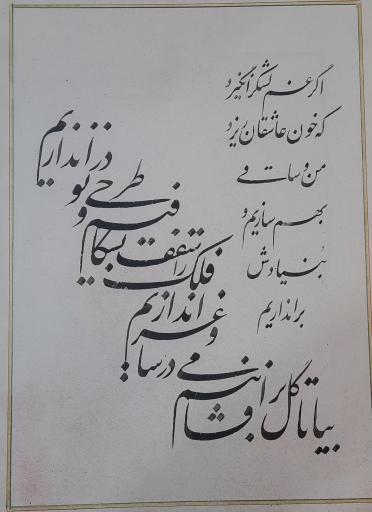 بیا تا گل برافشانیم
و می در ساغر
اندازیم
فلک را سقف بشکافیم
و طرحی نو
دراندازیم
اگر غم لشکر انگیزد
که خون عاشقان ریزد
من و ساقی
بهم سازیم و
بنیادش
براندازیم